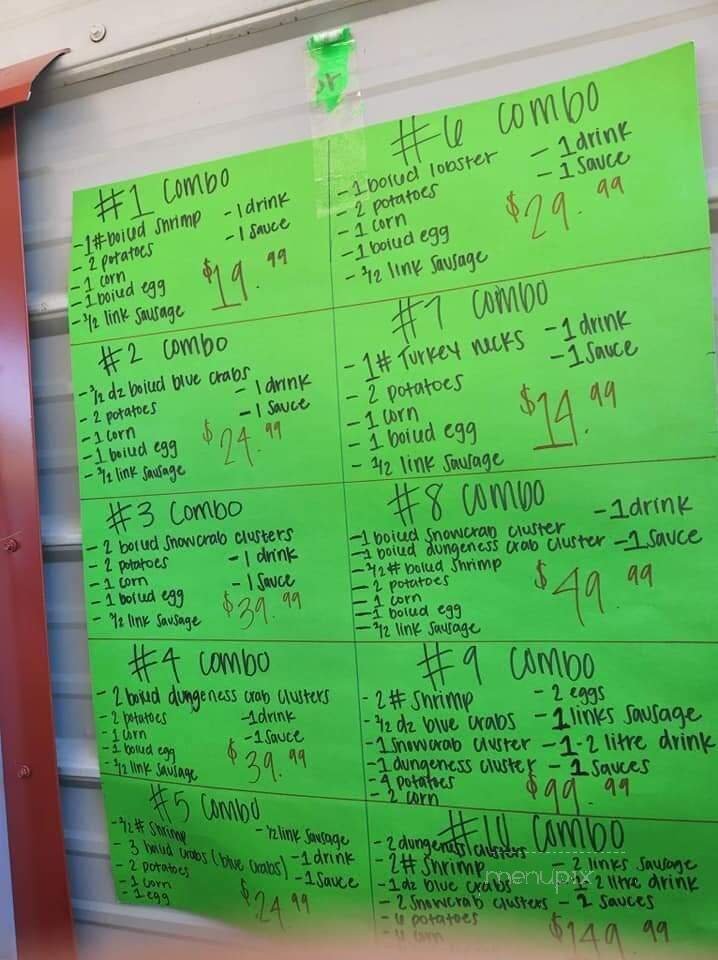 or
#1 combo
-1# boiled shrimp
- 2 potatoes
- 1 corn
- 1 boiled egg
- 1/2 link sausage
- 1 drink
- 1 sauce
$19.99
#2 combo
- 1/2 dz boiled blue crabs
- 2 potatoes
- 1 corn
- 1 boiled egg
- 1/2 link sausage
- 1 drink
- 1 sauce
$24.99
#3 combo
- 2 boiled snowcrab clusters
- 2 potatoes
- 1 corn
- 1 boiled egg
- 1/2 link sausage
- 1 drink
- 1 sauce
$39.99
#4 combo
- 2 boiled dungeness crab clusters
- 2 potatoes
- 1 corn
- 1 boiled egg
- 1/2 link sausage
- 1 drink
- 1 sauce
$39.99
#5 combo
- 1/2 # shrimp
- 3 boiled crabs (blue crabs)
- 2 potatoes
- 1 corn
- 1 egg
- 1/2 link sausage
- 1 drink
- 1 sauce
$24.99
#6 combo
- 1 boiled lobster
- 2 potatoes
- 1 corn
- 1 boiled egg
- 1/2 link sausage
- 1 drink
- 1 sauce
$29.99
#7 combo
- 1# Turkey necks
- 2 potatoes
- 1 corn
- 1 boiled egg
- 1/2 link sausage
- 1 drink
- 1 sauce
$14.99
#8 combo
- 1 boiled snowcrab cluster
- 1 boiled dungeness crab cluster
- 1/2 # boiled shrimp
- 2 potatoes
- 1 corn
- 1 boiled egg
- 1/2 link sausage
- 1 drink
- 1 sauce
$49.99
#9 combo
- 2# shrimp
- 1/2 dz blue crabs
- 1 snowcrab cluster
- 1 dungeness cluster
- 4 potatoes
- 2 corn
- 2 eggs
- 1 links sausage
- 1-2 litre drink
- 1 sauces
$99.99
#10 combo
- 2 dungeness clusters
- 2# shrimp
- 1 dz blue crabs
- 2 snowcrab clusters
- 6 potatoes
- 2 links sausage
2 litre drink
- 2 sauces
$149.99
menupix